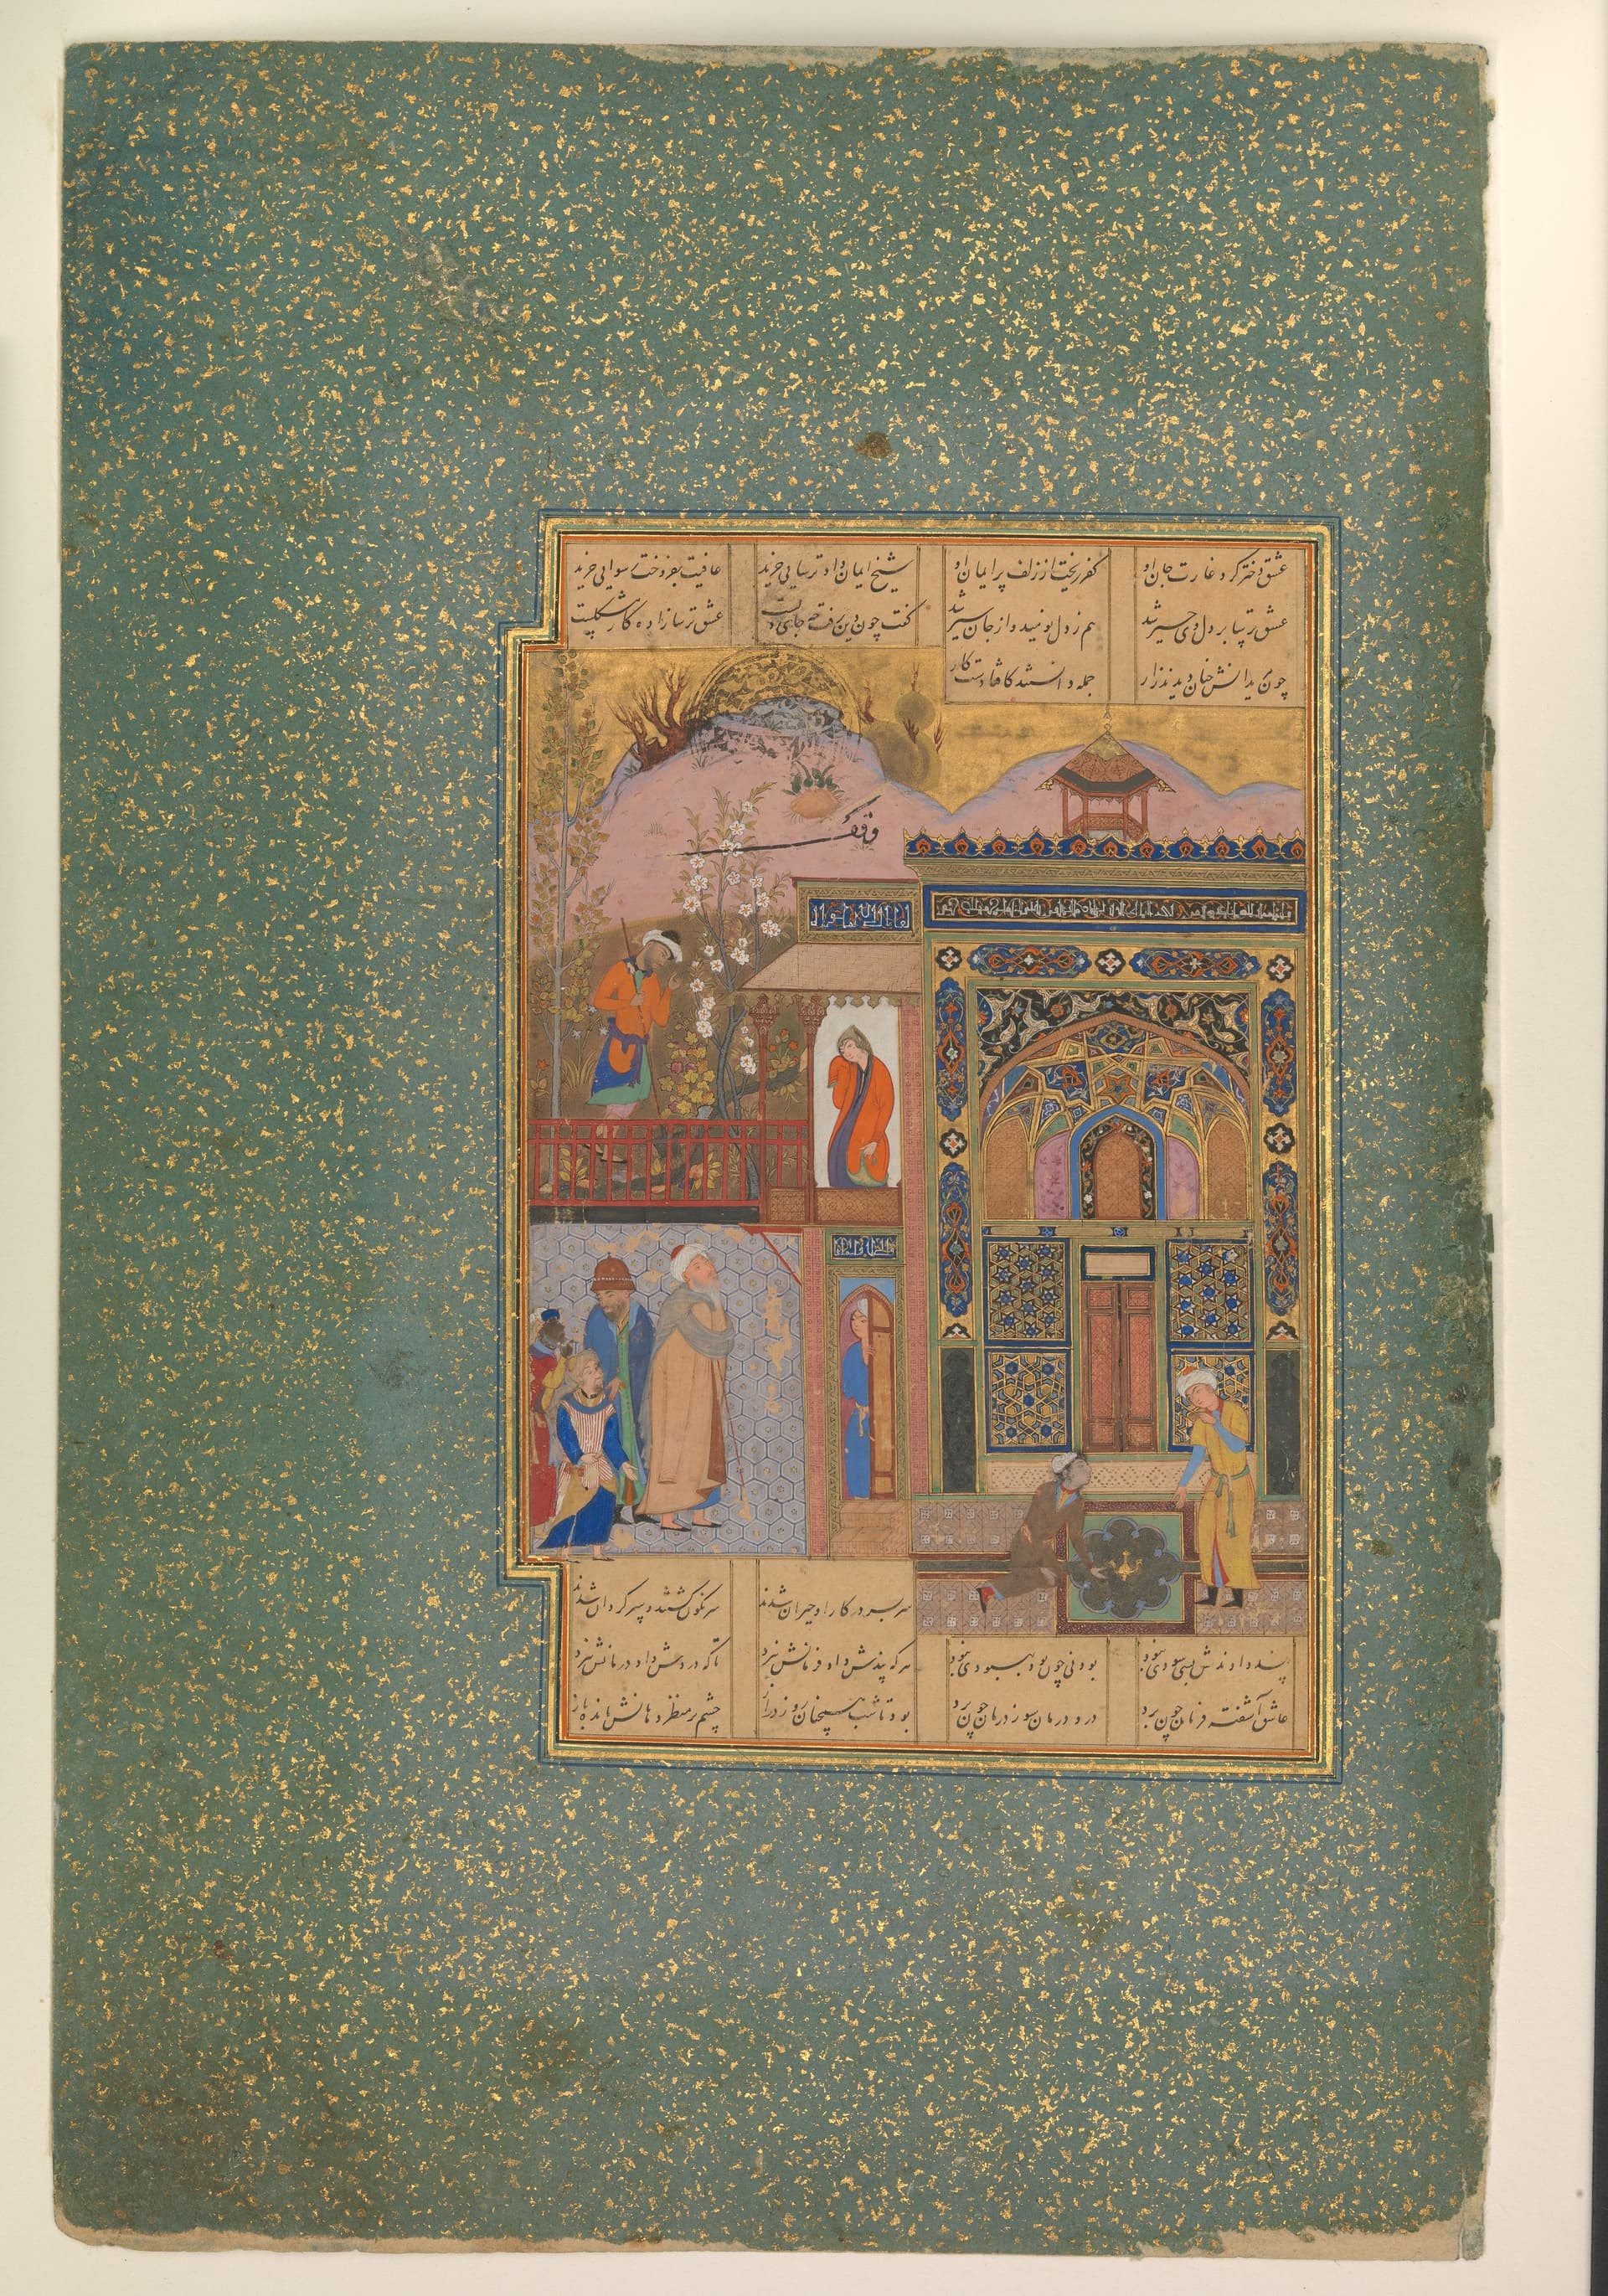 عشق دختر کرد غارت جان او کفر ریخت از زلف بر ایمان او شیخ ایمان داد و ترسایی خرید عافیت بفروخت رسوایی خرید
عشق ترسا بر دل وی چیر شد هم ز دل نومید و از جان سیر شد گفت چون دین رفت چه جای دلست عشق ترسازاده کار مشکلست
چون مریدانش چنان دیدند زار جمله دانستند کافتادست کار
وقف
سر بسر در کار او حیران شدند سرنگون گشتند و سرگردان شدند
پند دادندش بسی سودی نبود بودنی چون بود بهبودی نبود هر که پندش داد فرمانش نبرد تا که دردش داد درمانش نبرد
عاشق آشفته فرمان چون برد درد درمان سوز درمان چون برد بود تا شب همچنان روز دراز چشم بر منظر دهانش مانده باز